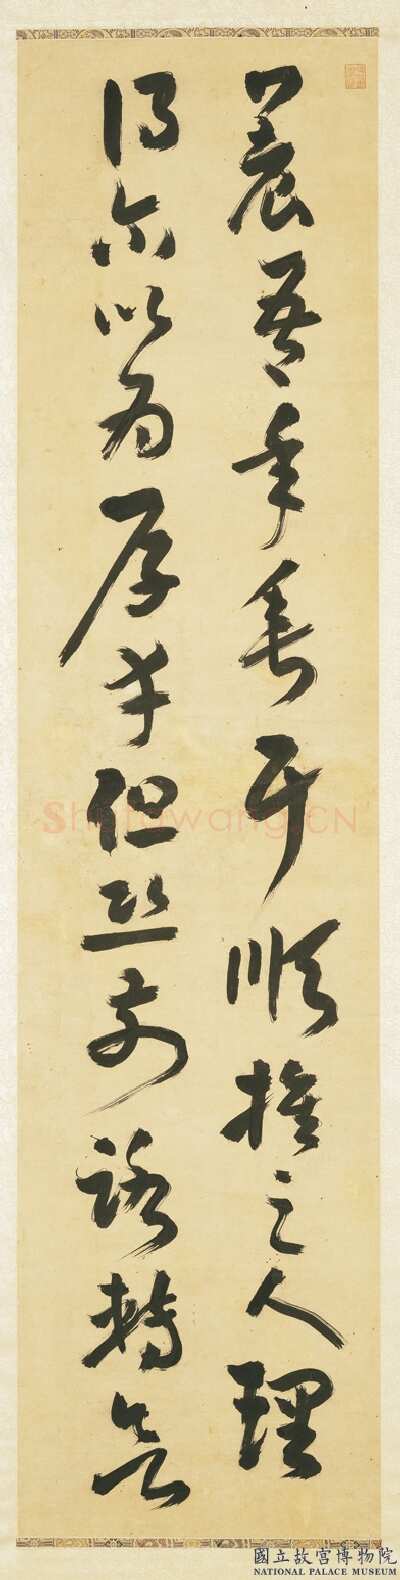 養吾年垂耳順推之人理
得爾以為厚幸但恐前路轉欲
Shufawang.CN
國立故宮博物院
NATIONAL PALACE MUSEUM